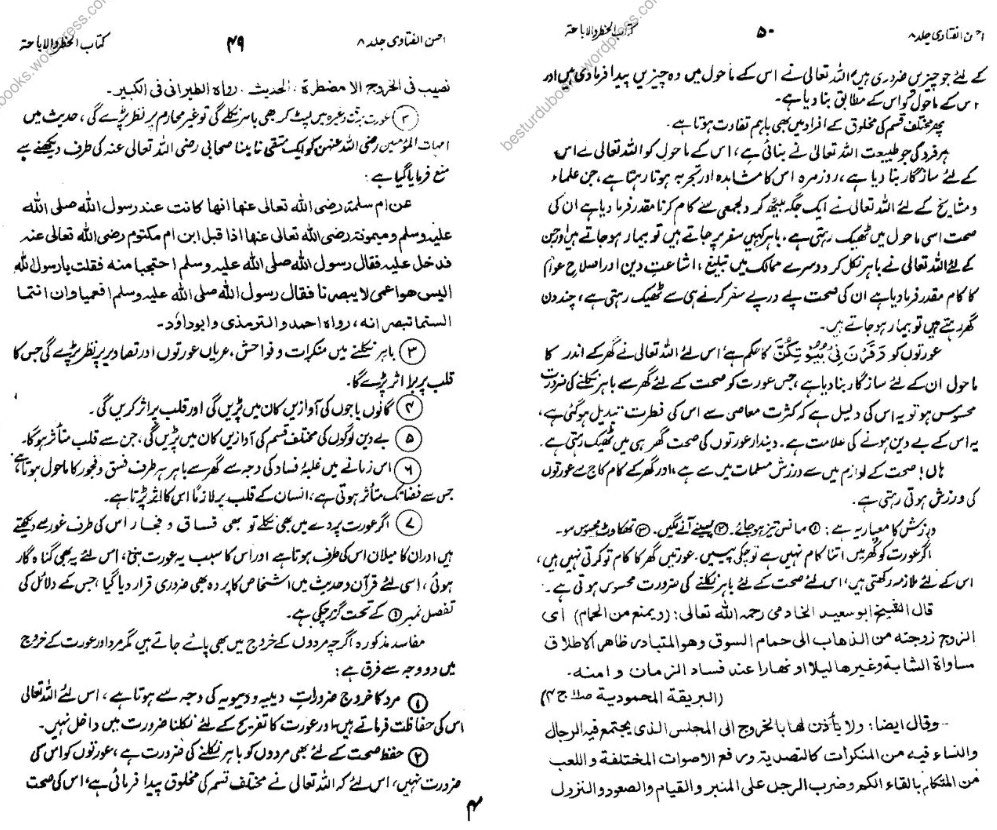 احسن الفتاوی جلد ۸ ۴۹ کتاب الحظر والاباحۃ
نصیب فی الخروج الا مضطرۃ، الحدیث. رواہ الطبرانی فی الکبیر.
۲ عورت برقع وغیرہ میں لپٹ کر بھی باہر نکلے گی تو غیر محارم پر نظر پڑے گی، حدیث میں
امہات المؤمنین رضی اللہ عنہن کو ایک متقی نابینا صحابی رضی اللہ تعالی عنہ کی طرف دیکھنے سے
منع فرمایا گیا ہے:
عن ام سلمۃ رضی اللہ تعالی عنہا انہا کانت عند رسول اللہ صلی اللہ
علیہ وسلم و میمونۃ رضی اللہ تعالی عنہا اذا قبل ابن ام مکتوم رضی اللہ تعالی عنہ
فدخل علیہ فقال رسول اللہ صلی اللہ علیہ وسلم احتجبا منہ فقلت یا رسول اللہ
الیس ھو اعمی لا یبصرنا فقال رسول اللہ صلی اللہ علیہ وسلم افعمیاوان انتما
الستما تبصرانہ، رواہ احمد والترمذی و ابوداود۔
۳ باہر نکلنے میں منکرات و فواحش، عریاں عورتوں اور تصاویر پر نظر پڑے گی جس کا
قلب پر برا اثر پڑے گا۔
۴ گانوں باجوں کی آوازیں کان میں پڑیں گی اور قلب پر اثر کریں گی۔
۵ بے دین لوگوں کی مختلف قسم کی آوازیں کان میں پڑیں گی، جن سے قلب متأثر ہوگا۔
۶ اس زمانے میں غلبۂ فساد کی وجہ سے گھر سے باہر ہر طرف فسق و فجور کا ماحول ہوتا ہے
جس سے فضا تک متأثر ہوتی ہے، انسان کے قلب پر لازمًا اس کا اثر پڑتا ہے۔
۷ اگر عورت پردے میں بھی نکلے تو بھی فساق و فجار اس کی طرف غور سے دیکھتے
ہیں اور ان کا میلان اس کی طرف ہوتا ہے اور اس کا سبب یہ عورت بنی، اس لئے یہ بھی گناہ گار
ہوئی، اسی لئے قرآن و حدیث میں اشخاص کا پردہ بھی ضروری قرار دیا گیا، جس کے دلائل کی
تفصل نمبر ۱ کے تحت گزر چکی ہے۔
مفاسد مذکورہ اگرچہ مردوں کے خروج میں بھی پائے جاتے ہیں مگر مرد اور عورت کے خروج
میں دو وجہ سے فرق ہے:
۱ مرد کا خروج ضرورات دینیہ و دنیویہ کی وجہ سے ہوتا ہے، اس لئے اللہ تعالی
اس کی حفاظت فرماتے ہیں، اور عورت کا تفریح کے لئے نکلنا ضرورت میں داخل نہیں۔
۲ حفظ صحت کے لئے بھی مردوں کو باہر نکلنے کی ضرورت ہے، عورتوں کو اس کی
ضرورت نہیں، اس لئے کہ اللہ تعالی نے مختلف قسم کی مخلوق پیدا فرمائی ہے، اس کی صحت
۴
احسن الفتاوی جلد ۸ ۵۰ کتاب الحظر والاباحۃ
کے لئے جو چیزیں ضروری ہیں اللہ تعالی نے اس کے ماحول میں وہ چیزیں پیدا فرمادی ہیں اور
اس کے ماحول کو اس کے مطابق بنا دیا ہے۔
پھر مختلف قسم کی مخلوق کے افراد میں بھی باہم تفاوت ہوتا ہے۔
ہر فرد کی جو طبیعت اللہ تعالی نے بنائی ہے، اس کے ماحول کو اللہ تعالی نے اس
کے لئے سازگار بنا دیا ہے، روزمرہ اس کا مشاہدہ اور تجربہ ہوتا رہتا ہے، جن علماء
و مشایخ کے لئے اللہ تعالی نے ایک جگہ بیٹھ کر دلجمعی سے کام کرنا مقدر فرما دیا ہے ان کی
صحت اسی ماحول میں ٹھیک رہتی ہے، باہر کہیں سفر پر جاتے ہیں تو بیمار ہو جاتے ہیں اور جن
کے لئے اللہ تعالی نے باہر نکل کر دوسرے ممالک میں تبلیغ، اشاعت دین اور اصلاح عوام
کا کام مقدر فرما دیا ہے ان کی صحت پے درپے سفر کرنے ہی سے ٹھیک رہتی ہے، چند دن
گھر رہتے ہیں تو بیمار ہو جاتے ہیں۔
عورتوں کو وَقَرْنَ فِیْ بُیُوْتِکُنَّ کا حکم ہے، اس لئے اللہ تعالی نے گھر کے اندر کا
ماحول ان کے لئے سازگار بنا دیا ہے، جس عورت کو صحت کے لئے گھر سے باہر نکلنے کی ضرورت
محسوس ہو تو یہ اس کی دلیل ہے کہ کثرت معاصی سے اس کی فطرت تبدیل ہو گئی ہے،
یہ اس کے بے دین ہونے کی علامت ہے۔ دیندار عورتوں کی صحت گھر ہی میں ٹھیک رہتی ہے۔
ہاں! صحت کے لوازم میں سے ورزش مسلمات میں سے ہے، اور گھر کے کام کاج سے عورتوں
کی ورزش ہوتی رہتی ہے۔
ورزش کا معیار یہ ہے: ۱ سانس تیز ہو جائے۔ ۲ پسینے آنے لگیں۔ ۳ تھکاوٹ محسوس ہو۔
اگر عورت کو گھر میں اتنا کام نہیں ہے تو چکی پیسیں۔ عورتیں گھر کا کام تو کرتی نہیں ہیں،
اس کے لئے ملازمہ رکھتی ہیں، اس لئے صحت کے لئے باہر نکلنے کی ضرورت محسوس ہوتی ہے۔
قال الشیخ ابو سعید الخادمی رحمہ اللہ تعالی: (ویمنع من الحمام) ای
الزوج زوجتہ من الذھاب الی حمام السوق وھو المتبادر ظاھر الاطلاق
مساواۃ الشابۃ وغیرھا لیلا او نھارا عند فساد الزمان و امنہ۔
(البریقۃ المحمودیۃ ج ۴)
وقال ایضا: ولا یأذن لھا بالخروج الی المجلس الذی یجتمع فیہ الرجال
والنساء فیہ من المنکرات کالتصدیۃ ورفع الاصوات المختلفۃ واللعب
من المتکلم بالقاء الکم وضرب الرجل علی المنبر والقیام والصعود والنزول
besturdubooks.wordpress.com